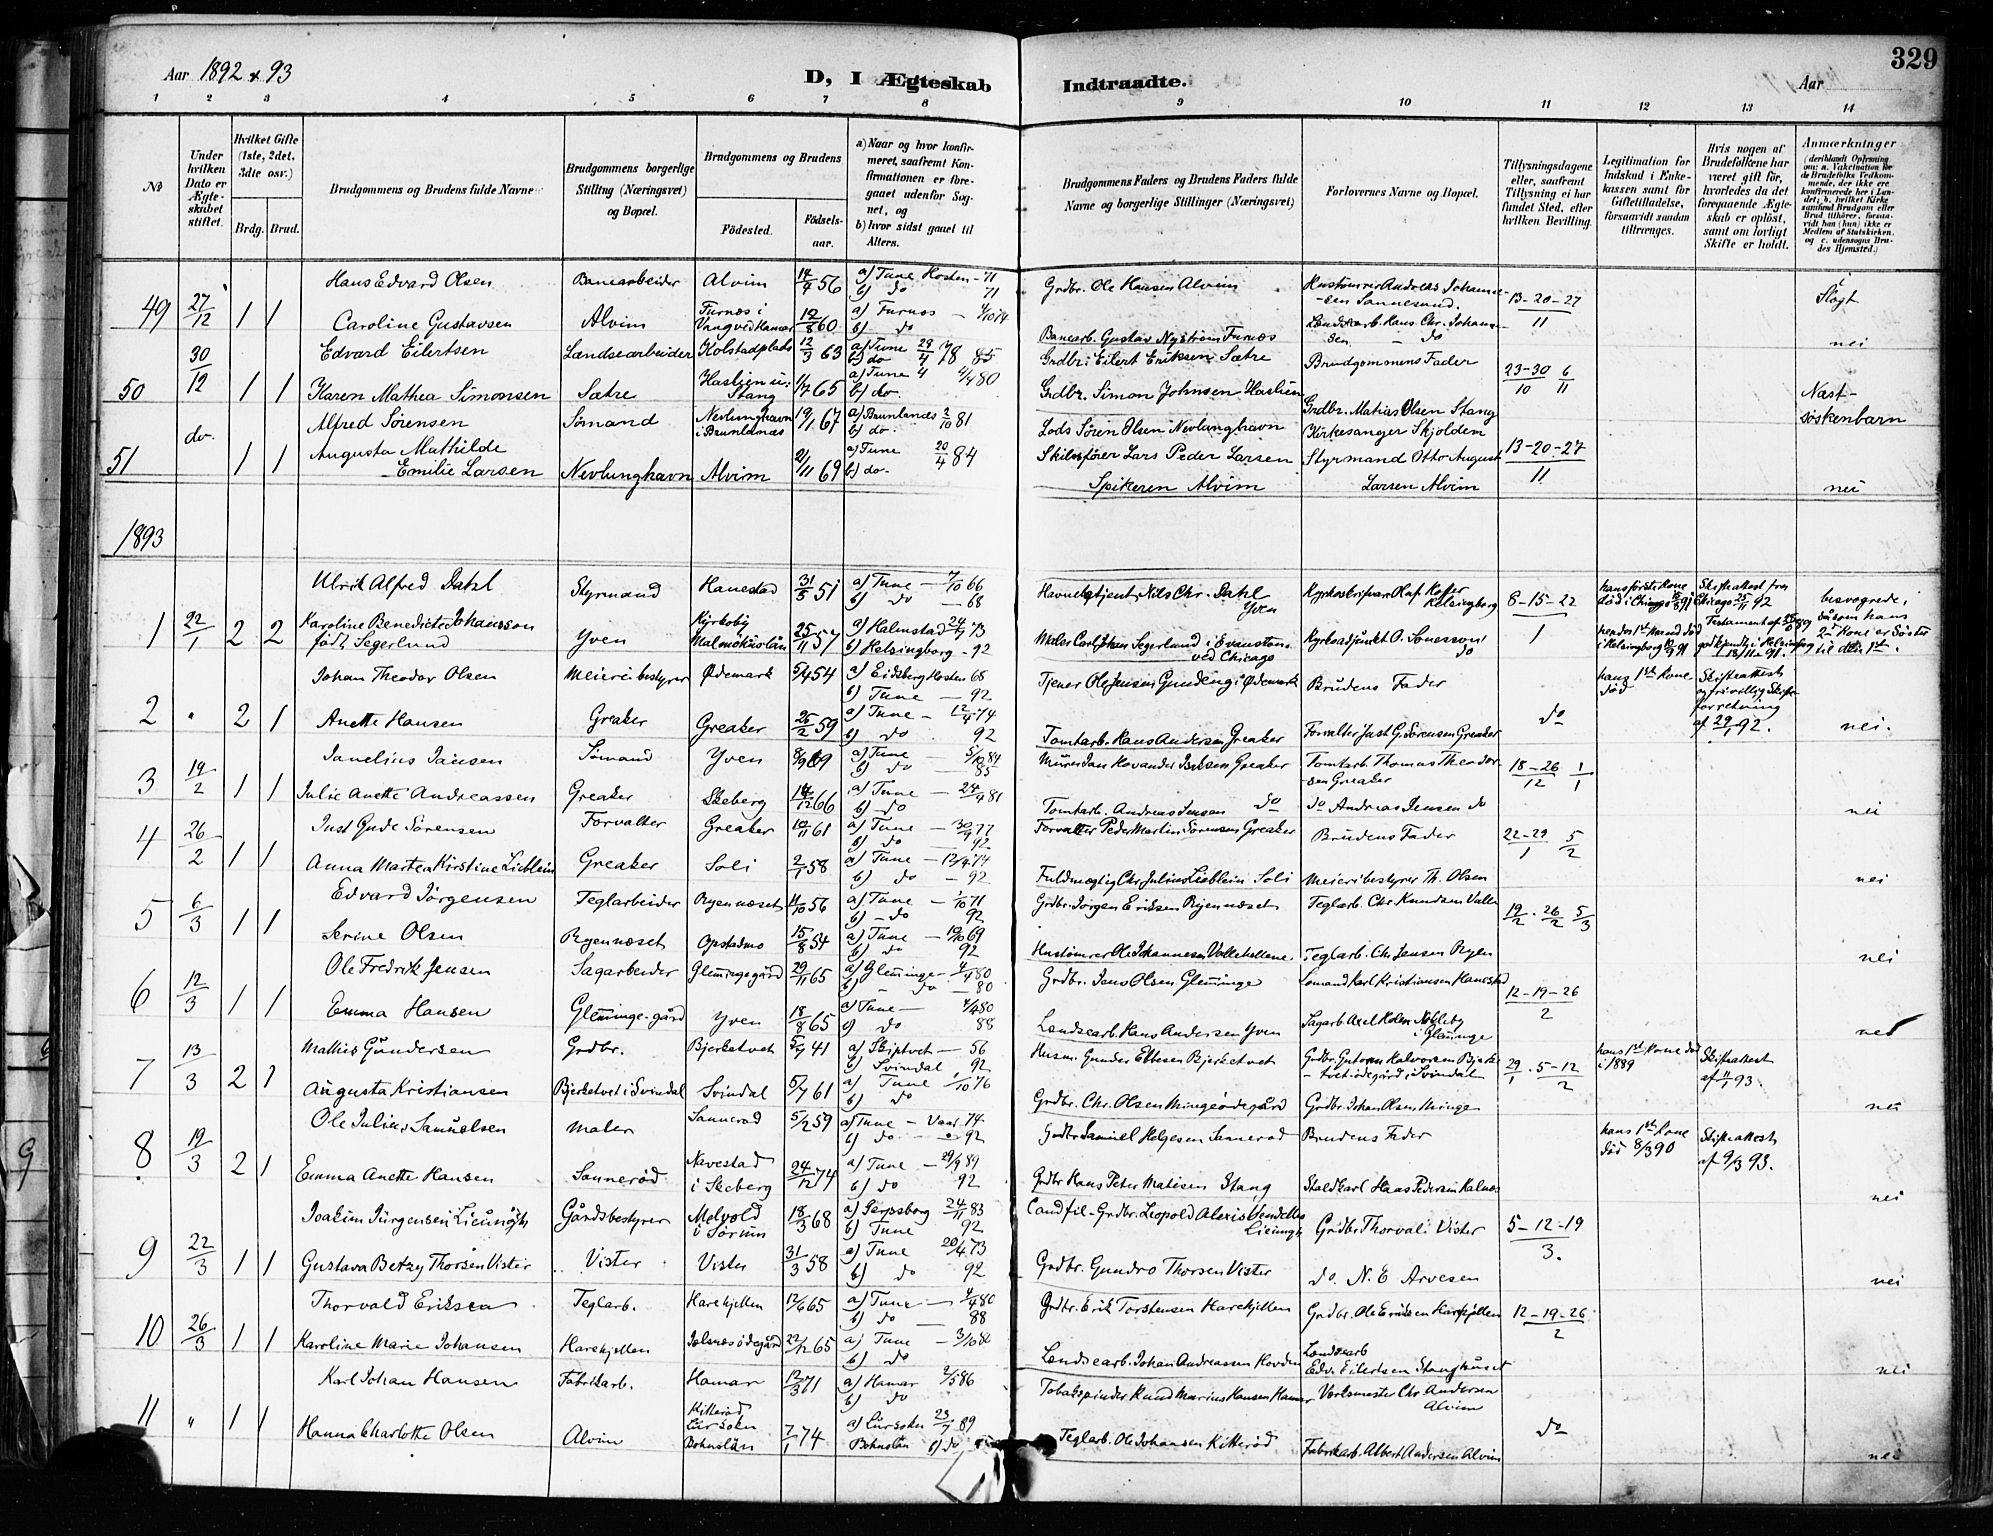 Aar 1892 & 93
D, I Ægteskab Indtraadte.
Aar
329
1 2 3 4 5 6 7 8 9 10 11 12 13 14
№
Under hvilken Dato er Ægteskabet stiftet.
Hvilket Gifte (1ste, 2det, 3dte osv.)
Brdg. Brud.
Brudgommens og Brudens fulde Navne
Brudgommens borgerlige Stilling (Næringsvei) og Bopæl.
Brudgommens og Brudens
Fødested. Fødselsaar.
a) Naar og hvor konfirmeret, saafremt Konfirmationen er foregaaet udenfor Sognet, og
b) hvor sidst gaaet til Alters.
Brudgommens Faders og Brudens Faders fulde Navne og borgerlige Stillinger (Næringsvei)
Forlovernes Navne og Bopæl.
Tillysningsdagene eller, saafremt Tillysning ei har fundet Sted, efter hvilken Bevilling.
Legitimation for Indskud i Enkekassen samt for Giftetilladelse, forsaavidt saadan tiltrænges.
Hvis nogen af Brudefolkene har været gift før, hvorledes da det foregaaende Ægteskab er opløst, samt om lovligt Skifte er holdt.
Anmærkninger
49 27/12 1 1 Hans Edvard Olsen Banearbeider Alvim 14/4 56 a) Tune Høsten - 71 b) do 71 Grdbr. Ole Hansen Alvim Hustømrer Andreas Johannesen Sannesund. 13-20-27/11 i Slægt
Caroline Gustavsen Alvim Furnæs i Vang ved Hamar 12/8 60 a) Furnæs b) do Banearb. Gustav Nystrøm Furnæs Landsearb. Hans Chr. Johansen do nei
50 30/12 1 1 Edvard Eilertsen Landsearbeider Kolstadplads 12/3 63 a) Tune b) do Grdbr. Eilert Eriksen Sætre Brudgommens Fader 23-30/10 6/11
Karen Mathea Simonsen Sætre Haslien u: Stang 1/7 65 a) Tune b) do. Grdbr. Simon Johnsen Haslien Grdbr. Matias Olsen Stang Næstsøskenbarn
51 do. 1 1 Alfred Sørensen Sømand Nevlunghavn i Brunlanæs 19/1 67 a) Brunlanæs 2/10 81 b) do. Lods Søren Olsen Nevlunghavn Kirkesanger Skjolden 13-20-27/11
Augusta Mathilde Emilie Larsen Nevlunghavn Alvim 21/11 69 a) Tune 20/4 84 b) do. Skibsfører Lars Peder Larsen Spikeren Alvim Styrmand Otto August Larsen Alvim nei
1893
1 22/1 2 2 Ulrik Alfred Dahl Styrmand Hanestad 31/5 51 a) Tune - 7/10 66 b) do - 68 Havnebetjent Nils Chr. Dahl Yven Kyrkoskrifvar Olaf Helsingborg 8-15-22/1 hans første Kone død i Chicago Skifteattest fra Chicago 25/11 92 besvogrede, såsom hans 2den Kone er Søster til den 1ste.
Karoline Benedicte Johansson født Segerlund Yven Kyrkoby Malmöhuslän 25/11 57 a) Halmstad 24/7 73 b) Helsingborg - 92 Maler Carl Johan Segerlund i Evanston ved Chicago Kyrkoadjunkt O. Svensson do hendes 1ste Mand død i Helsingborg Testament af godkjendt i Helsingborg 18/11 91.
2 " 2 1 Johan Theodor Olsen Meieribestyrer Ødemark 5/4 54 a) Eidsberg Høsten 68 b) Tune - 92 Tjener Ole Jensen Gundeng i Ødemark Brudens Fader do hans 1ste Kone død Skifteattest og frivillig Skifteforretning af 29/1 92.
Anette Hansen Greaker Greaker 26/2 59 a) Tune - 12/4 74 b) do 92 Tomtarb. Hans Andersen Greaker Forvalter Just G. Sørensen Greaker nei.
3 14/2 1 1 Janelius Jansen Sømand Yven 8/9 69 a) Tune - 5/10 84 b) do 85 Murer Jan Hovander Greaker Tomtarb Thomas Theodorsen Greaker 18-26/12 1/1
Julie Anette Andreassen Greaker Skeberg 14/12 66 a) Tune - 24/4 81 b) do Tomtarb. Andreas Jensen do do Andreas Jensen do nei
4 26/2 1 1 Just Gude Sørensen Forvalter Greaker 10/11 61 a) Tune - 30/9 77 b) do - 92 Forvalter Peder Martin Sørensen Greaker Brudens Fader 22-29/1 5/2
Anna Martea Kirstine Lieblein Greaker Soli 2/1 58 a) Tune - 12/4 74 b) do - 92 Fuldmægtig Chr. Julius Lieblein Soli Meieribestyrer Th. Olsen nei
5 6/3 1 1 Edvard Jørgensen Teglarbeider Ryennæset 11/10 56 a) Tune - 1/10 71 b) - do 92 Grdbr. Jørgen Eriksen Ryennæset Teglarb. Chr. Knudsen Valle 19/2. 26/2 5/3
Serine Olsen Ryennæset Opstadmo 15/8 54 a) Tune - 10/10 69 b) do 92 Hustømrer Ole Johannesen Vallehellene Teglarb. Chr. Jensen Ryen nei
6 12/3 1 1 Ole Fredrik Jensen Sagarbeider Glemmingegård 29/11 65 a) Glemminge - 4/4 80 b) - do - 80 Grdbr. Jens Olsen Glemminge Sømand Karl Kristiansen Hanestad 12-19-26/2
Emma Hansen Glemminge-gård Yven 18/8 65 a) Tune - 4/4 80 b) do 88 Landsearb. Hans Andersen Yven Sagarb. Axel Holm Nabbeby i Glemminge nei
7 13/3 2 1 Mathis Gundersen Grdbr. Bjerketvet 5/7 41 a) Skiptvet - 56 b) Svindal 92 Husm. Gunder Ellesen Bjerketvet Grdbr. Gutorm Halvorsen Bjerketvet ødegård i Svindal 29/1. 5-12/2 hans 1ste Kone død i 1889 Skifteattest af 11/1 93.
Augusta Kristiansen Bjerketvet i Svindal Svindal 5/7 61 a) Tune 1/10 76 b) do Grdbr. Chr. Olsen Mingeødegård Grdbr. Johan Olsen Minge nei
8 19/3 2 1 Ole Julius Samuelsen Maler Sannerød 5/2 59 a) Tune - Vaar 74 b) do - 92 Grdbr. Samuel Helgesen Sannerød Brudens Fader hans 1ste Kone død 8/3 90 Skifteattest af 9/3 93.
Emma Anette Hansen Sannerød Navestad i Skeberg 24/12 74 a) Tune - 29/9 89 b) do 92 Grdbr Hans Peter Matisen Stang Staldkarl Hans Pedersen Kalnæs nei
9 22/3 1 1 Joakim Jürgensen Lieungh Gårdsbestyrer Melvold i Sørum 18/3 68 a) Sarpsborg 24/11 83 b) Tune 92 Cand fil - Grdbr. Leopold Alexis Vendelbo Lieungh Grdbr. Thorvald Vister 5-12-19/3.
Gustava Betzy Thorsen Vister Vister Vister 31/3 58 a) Tune 20/4 73 b) do 92 Grdbr. Gundro Thorsen Vister do. N. E Arvesen nei
10 26/3 1 1 Thorvald Eriksen Teglarb. Harehjellen 12/6 65 a) Tune - 4/4 80 b) do 88 Grdbr. Erik Torstensen Harehjellen Grdbr. Ole Eriksen Harehjellen 12-19-26/2
Karoline Marie Johansen Harehjellen Jelsnæsødegård 22/12 65 a) Tune - 3/10 80 b) do Landsearb. Johan Andreassen Hovden Landsearb Edv. Eilertsen Stanghuset nei
11 " 1 1 Karl Johan Hansen Fabrikarb. Hamar 12/3 71 a) Hamar 2/5 86 b) do Tobakspinder Knud Marius Hansen Hamar Verksmester Chr. Andersen Alvim do
Hanna Charlotte Olsen Alvim Kitterød Lursokn Bohuslän 7/1 74 a) Lursokn 23/7 89 Bohuslän b) do Teglarb. Ole Johansen Kitterød Fabrikarb. Albert Andersen Alvim nei